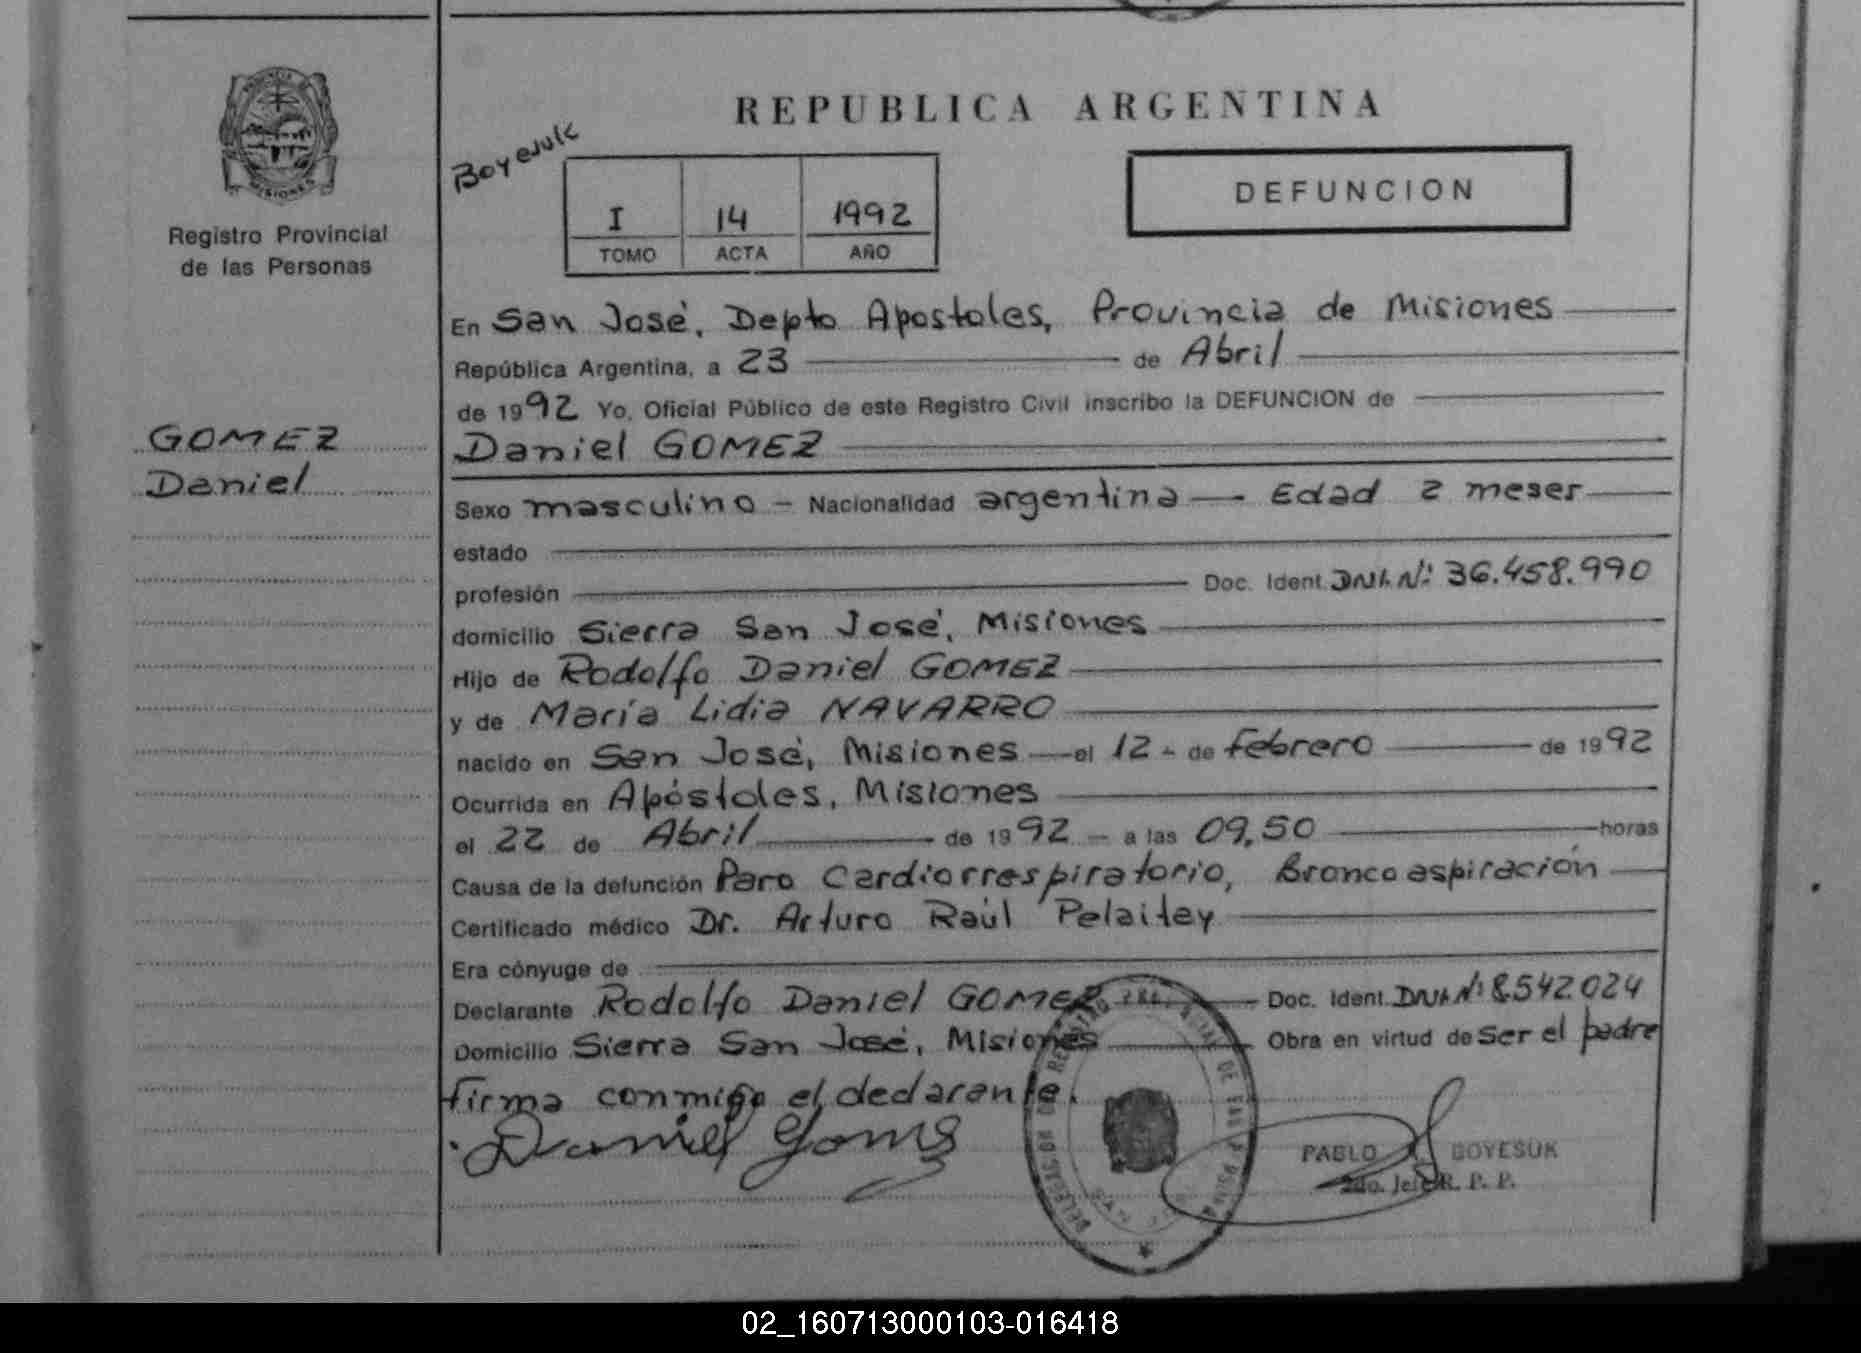 REPUBLICA ARGENTINA
Boyesuk
DEFUNCION
PROVINCIA
MISIONES
Registro Provincial
de las Personas
I 14 1992
TOMO ACTA AÑO
GOMEZ
Daniel
En San José, Depto Apostoles, Provincia de Misiones
República Argentina, a 23 de Abril
de 1992 Yo, Oficial Público de este Registro Civil inscribo la DEFUNCION de
Daniel GOMEZ
Sexo masculino - Nacionalidad argentina - Edad 2 meses
estado
profesión Doc. Ident. DNI. Nº: 36.458.990
domicilio Sierra San José, Misiones
Hijo de Rodolfo Daniel GOMEZ
y de María Lidia NAVARRO
nacido en San José, Misiones - el 12 - de Febrero de 1992
Ocurrida en Apóstoles, Misiones
el 22 de Abril de 1992 - a las 09,50 horas
Causa de la defunción Paro Cardiorrespiratorio, Broncoaspiración
Certificado médico Dr. Arturo Raúl Pelaitey
Era cónyuge de
Declarante Rodolfo Daniel GOMEZ Doc. Ident. DNI. Nº 8.542.024
Domicilio Sierra San José, Misiones Obra en virtud de Ser el padre
firma conmigo el declarante.
Daniel Gomez
PABLO BOYESUK
2do. Jefe R. P. P.
02_160713000103-016418